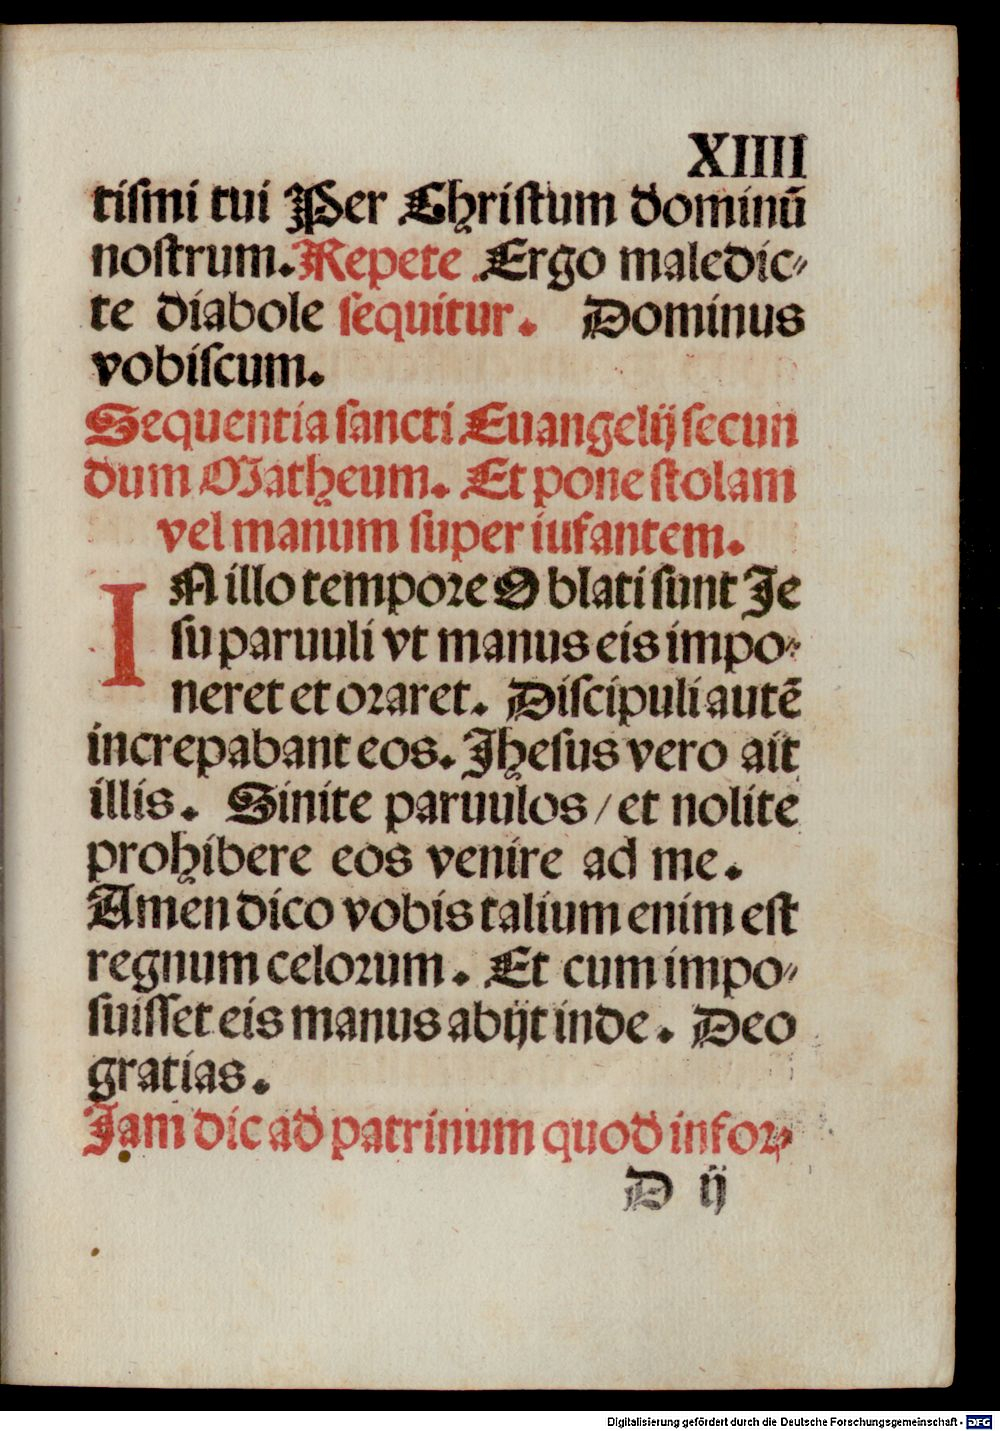 XIIII
tiſmi tui Per Chriſtum dominū
noſtrum. Repete Ergo maledic⸗
te diabole ſequitur. Dominus
vobiſcum.
Sequentia ſancti Euangelij ſecun
dum Matheum. Et pone ſtolam
vel manum ſuper iufantem.
IN illo tempore Oblati ſunt Je
ſu paruuli vt manus eis impo⸗
neret et oꝛaret. Diſcipuli autē
increpabant eos. Jheſus vero ait
illis. Sinite paruulos / et nolite
prohibere eos venire ad me.
Amen dico vobis talium enim eſt
regnum celoꝛum. Et cum impo⸗
ſuiſſet eis manus abijt inde. Deo
gratias.
Jam dic ad patrinum quod infoꝛ⸗
D ij
Digitalisierung gefördert durch die Deutsche Forschungsgemeinschaft - DFG